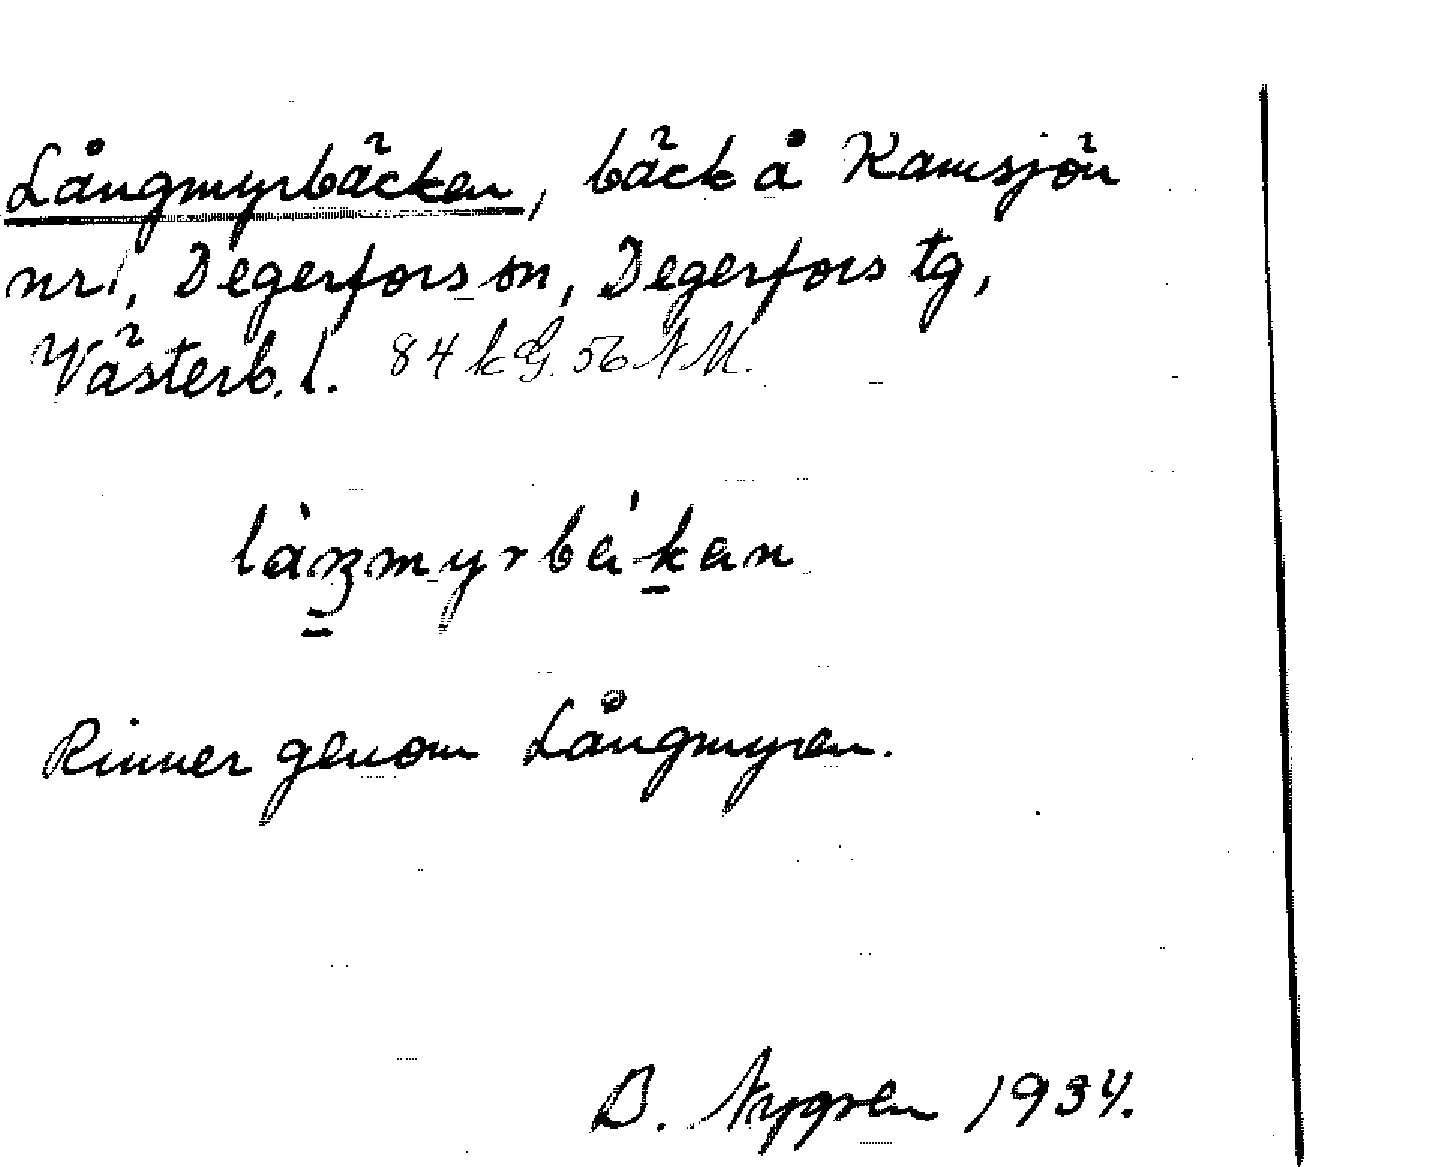 Långmyrbäcken, bäck å Kamsjön
nr 1, Degerfors sn, Degerfors tg,
Västerb. l. 84 kG. 56 NM.
Rinner genom Långmyren.
B. Nygren 1934.